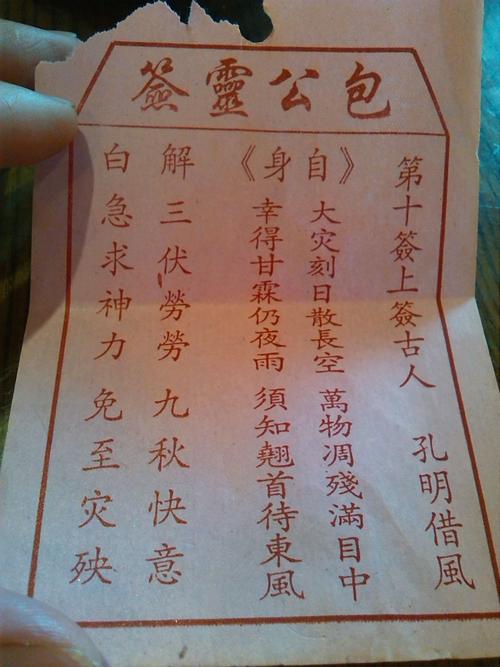 包公靈簽
第十簽上簽古人 孔明借風
《自身》
大灾刻日散長空 萬物凋殘滿目中
幸得甘霖仍夜雨 須知翹首待東風
解三伏勞勞九秋快意
白急求神力免至灾殃